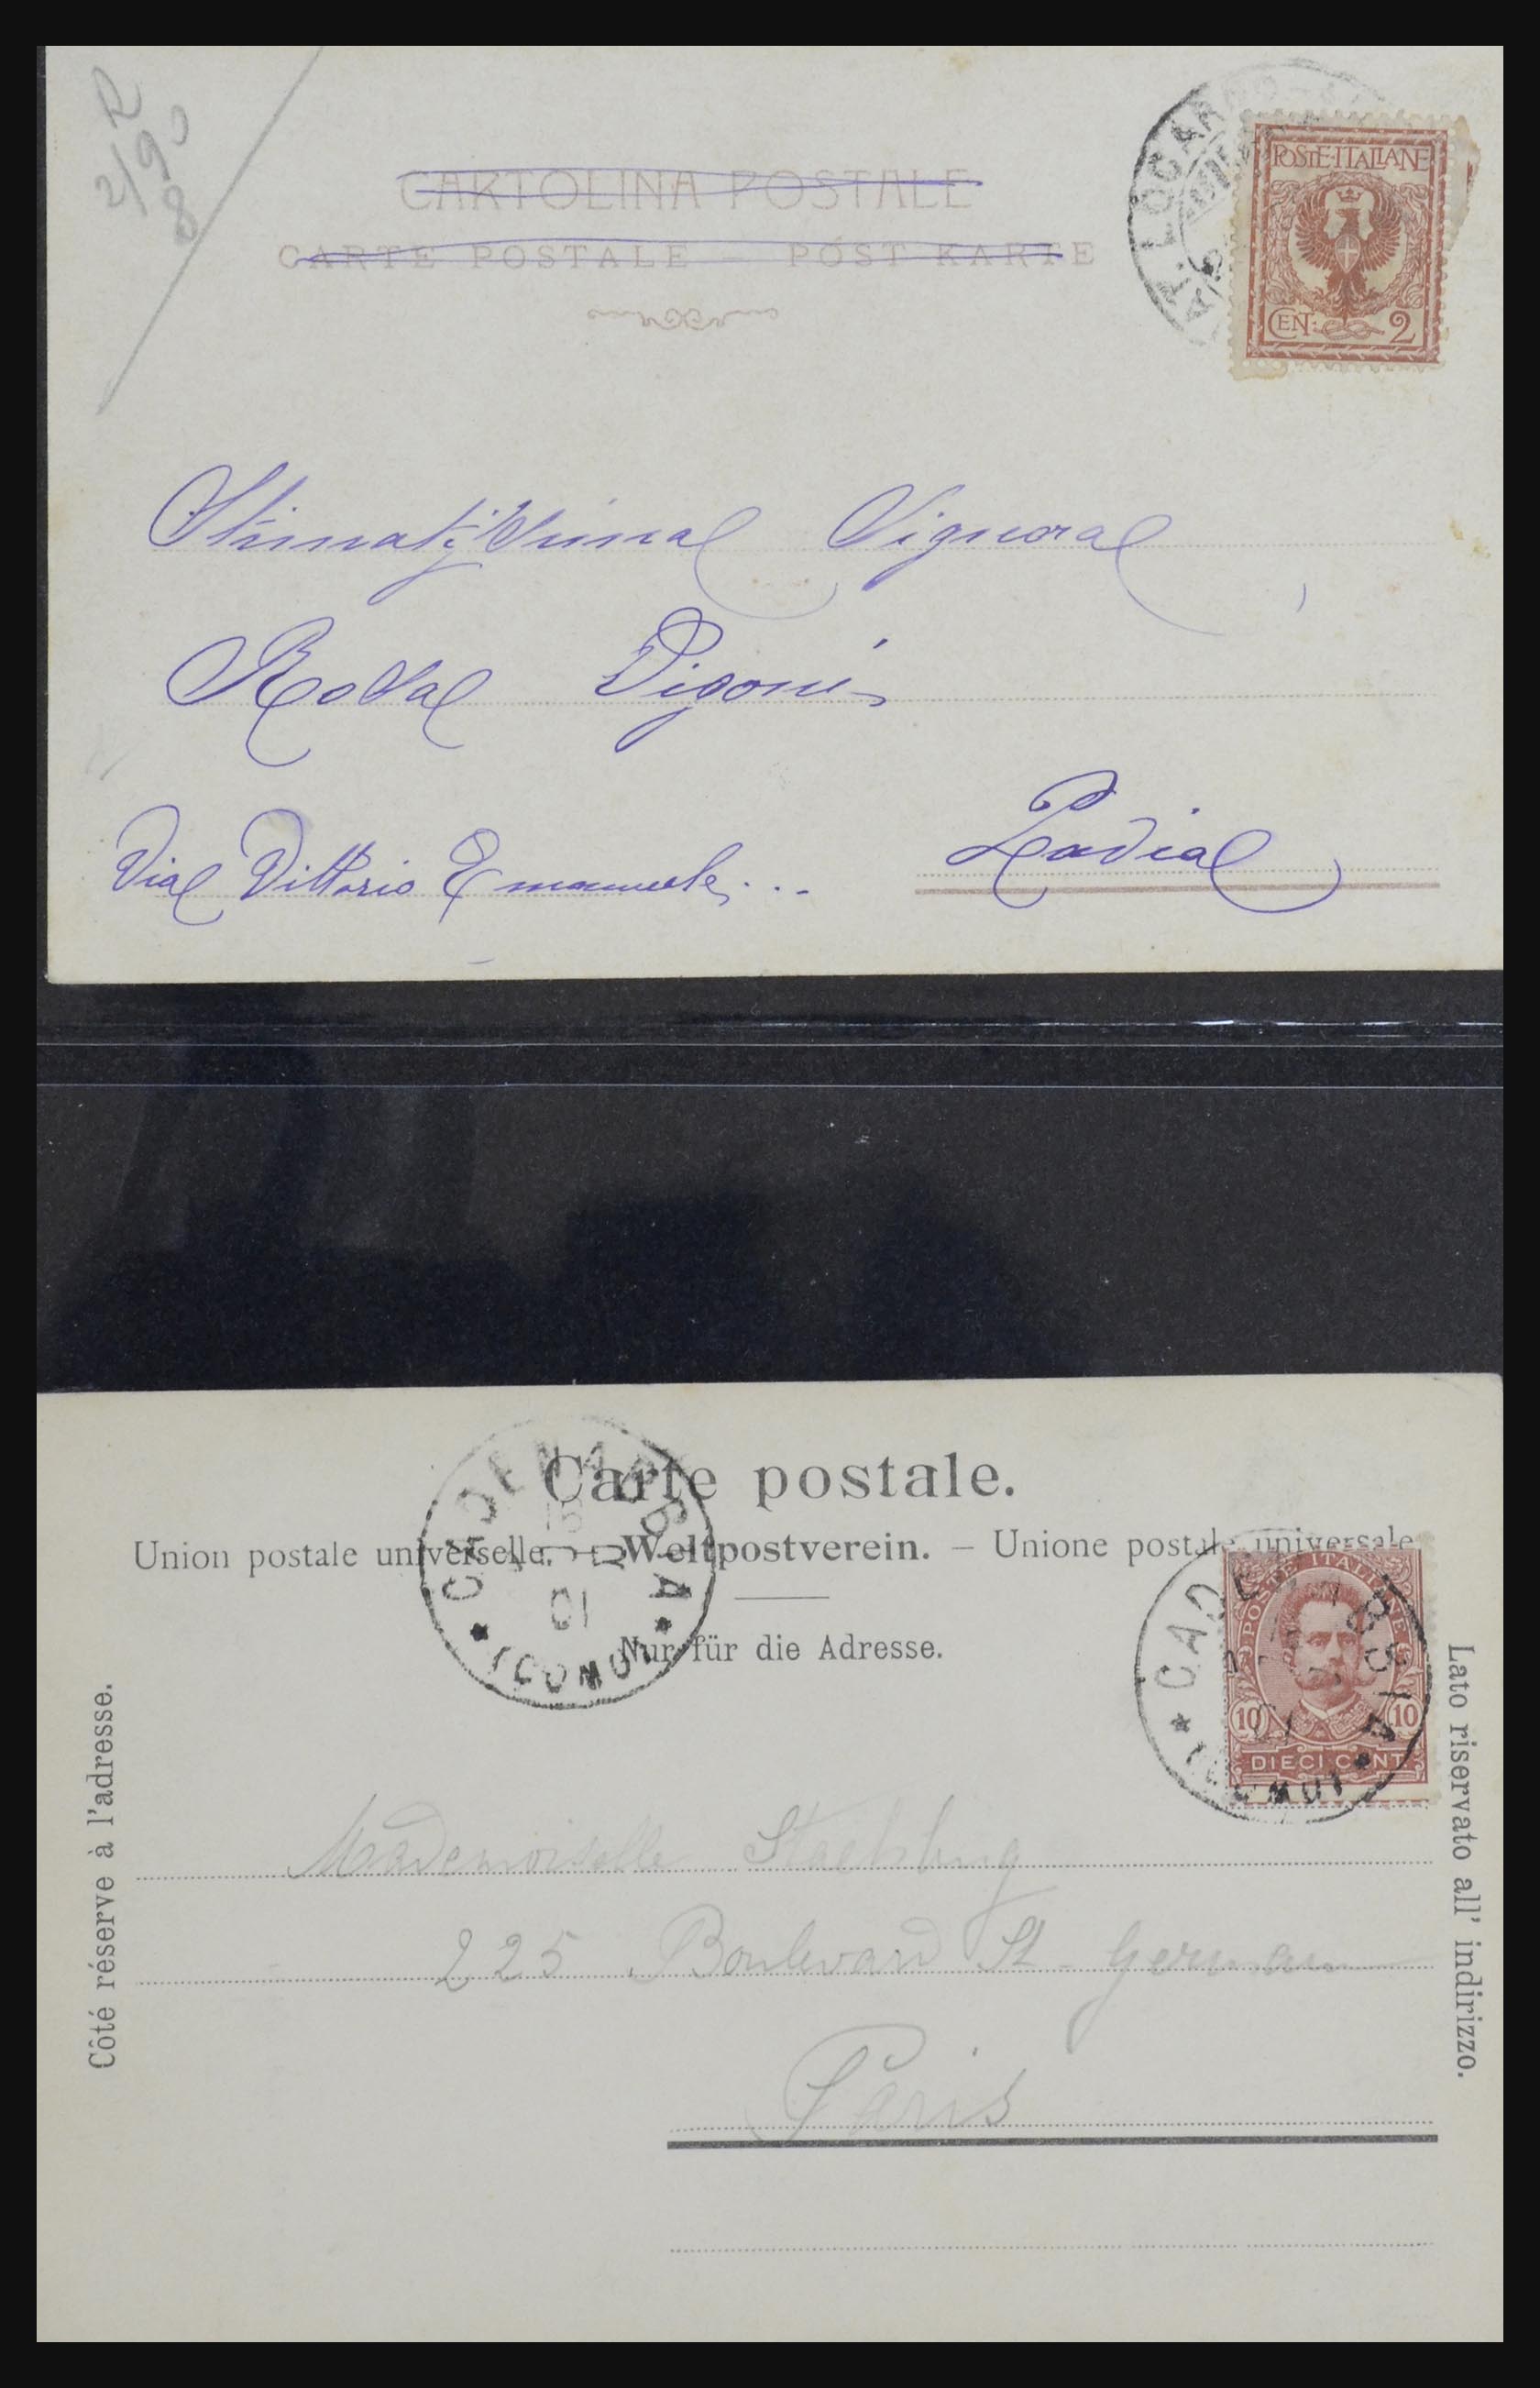 R
2/90
8
CARTOLINA POSTALE
CARTE POSTALE — POST KARTE
AT. LOCARNO
POSTE·ITALIANE
CEN: 2
Signora
Rosa
Via Vittorio Emanuele...
Carte postale.
Union postale universelle. — Weltpostverein. — Unione postale universale
Nur für die Adresse.
CADENABBIA
(COMO)
01
CADENABBIA
(COMO)
01
POSTE ITALIANE
10 10
DIECI CENT
Côté réserve à l'adresse.
Lato riservato all' indirizzo.
Mademoiselle
225 Boulevard St. Germain
Paris